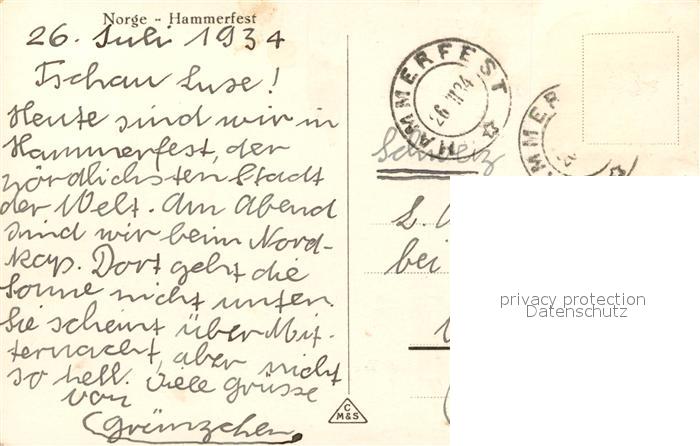 Norge - Hammerfest
26. Juli 1934
Tschau Luse!
Heute sind wir in
Hammerfest, der
nördlichsten Stadt
der Welt. Am Abend
sind wir beim Nord-
kap. Dort geht die
Sonne nicht unter.
Sie scheint über Mit-
ternacht, aber nicht
so hell. Viele Grüsse
von
Grünzchen
C
M&S
HAMMERFEST
26 VII 34
Schweiz
L.
bei
privacy protection
Datenschutz